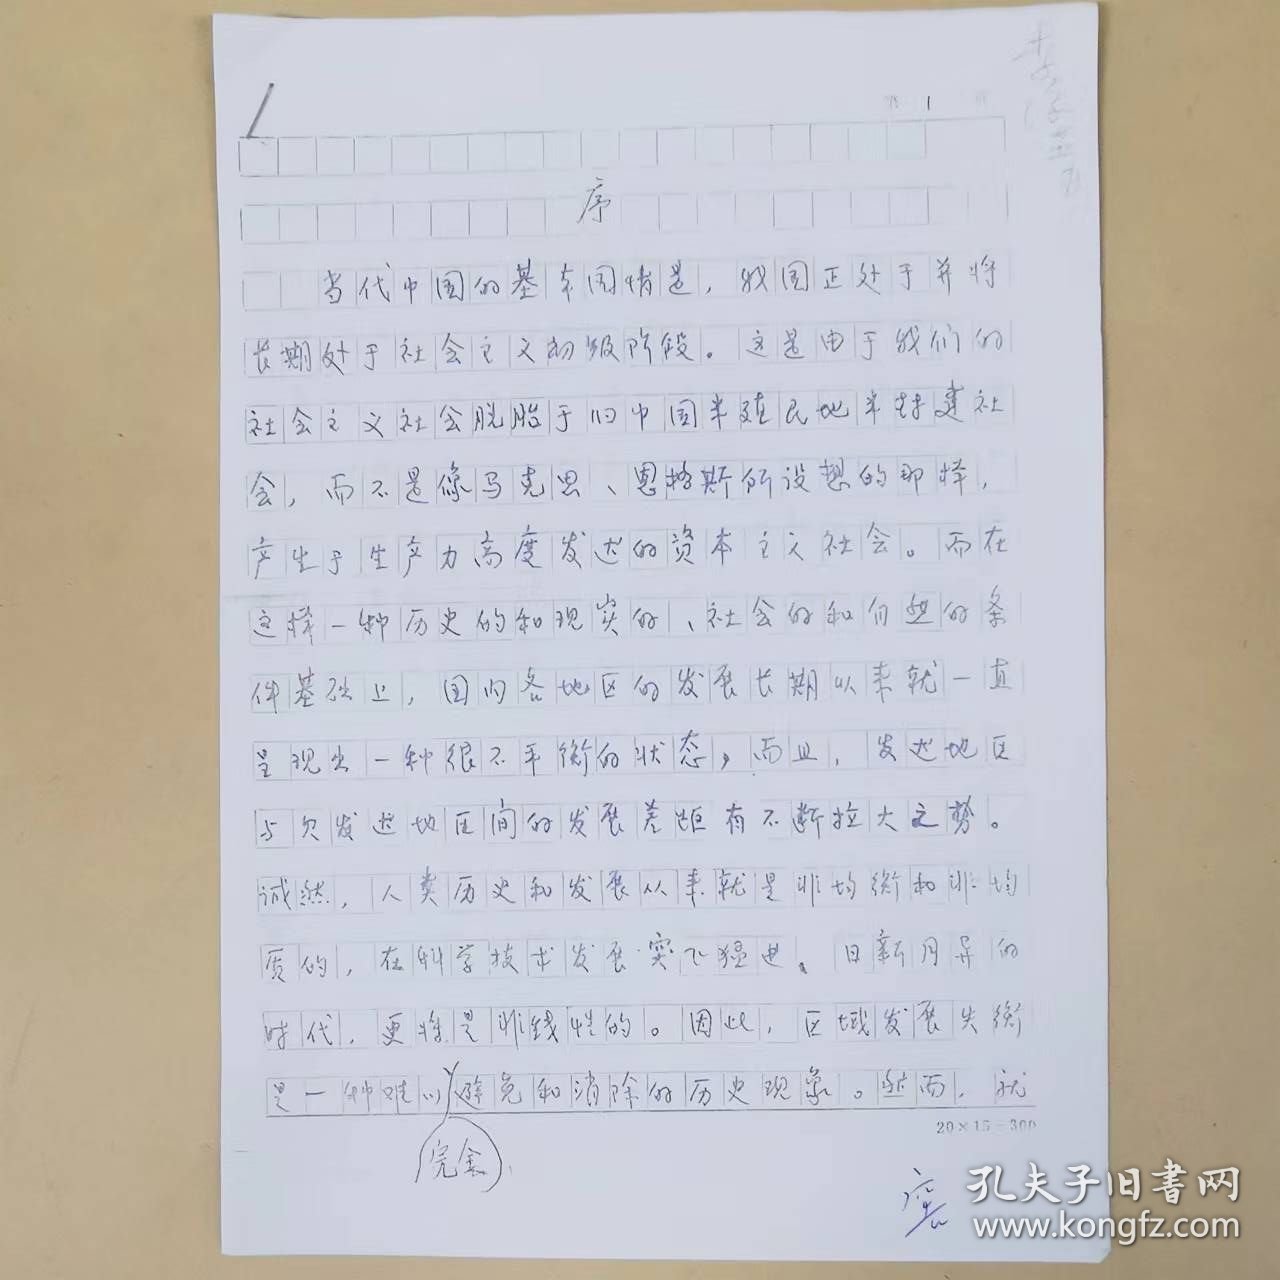 1
序
当代中国的基本国情是，我国正处于并将
长期处于社会主义初级阶段。这是由于我们的
社会主义社会脱胎于旧中国半殖民地半封建社
会，而不是像马克思、恩格斯所设想的那样，
产生于生产力高度发达的资本主义社会。而在
这样一种历史的和现实的、社会的和自然的条
件基础上，国内各地区的发展长期以来就一直
呈现出一种很不平衡的状态，而且，发达地区
与欠发达地区间的发展差距有不断拉大之势。
诚然，人类历史和发展从来就是非均衡和非均
质的，在科学技术发展突飞猛进、日新月异的
时代，更将是非线性的。因此，区域发展失衡
是一种难以避免和消除的历史现象。然而，就
20×15=300
完全
孔夫子旧书网
www.kongfz.com